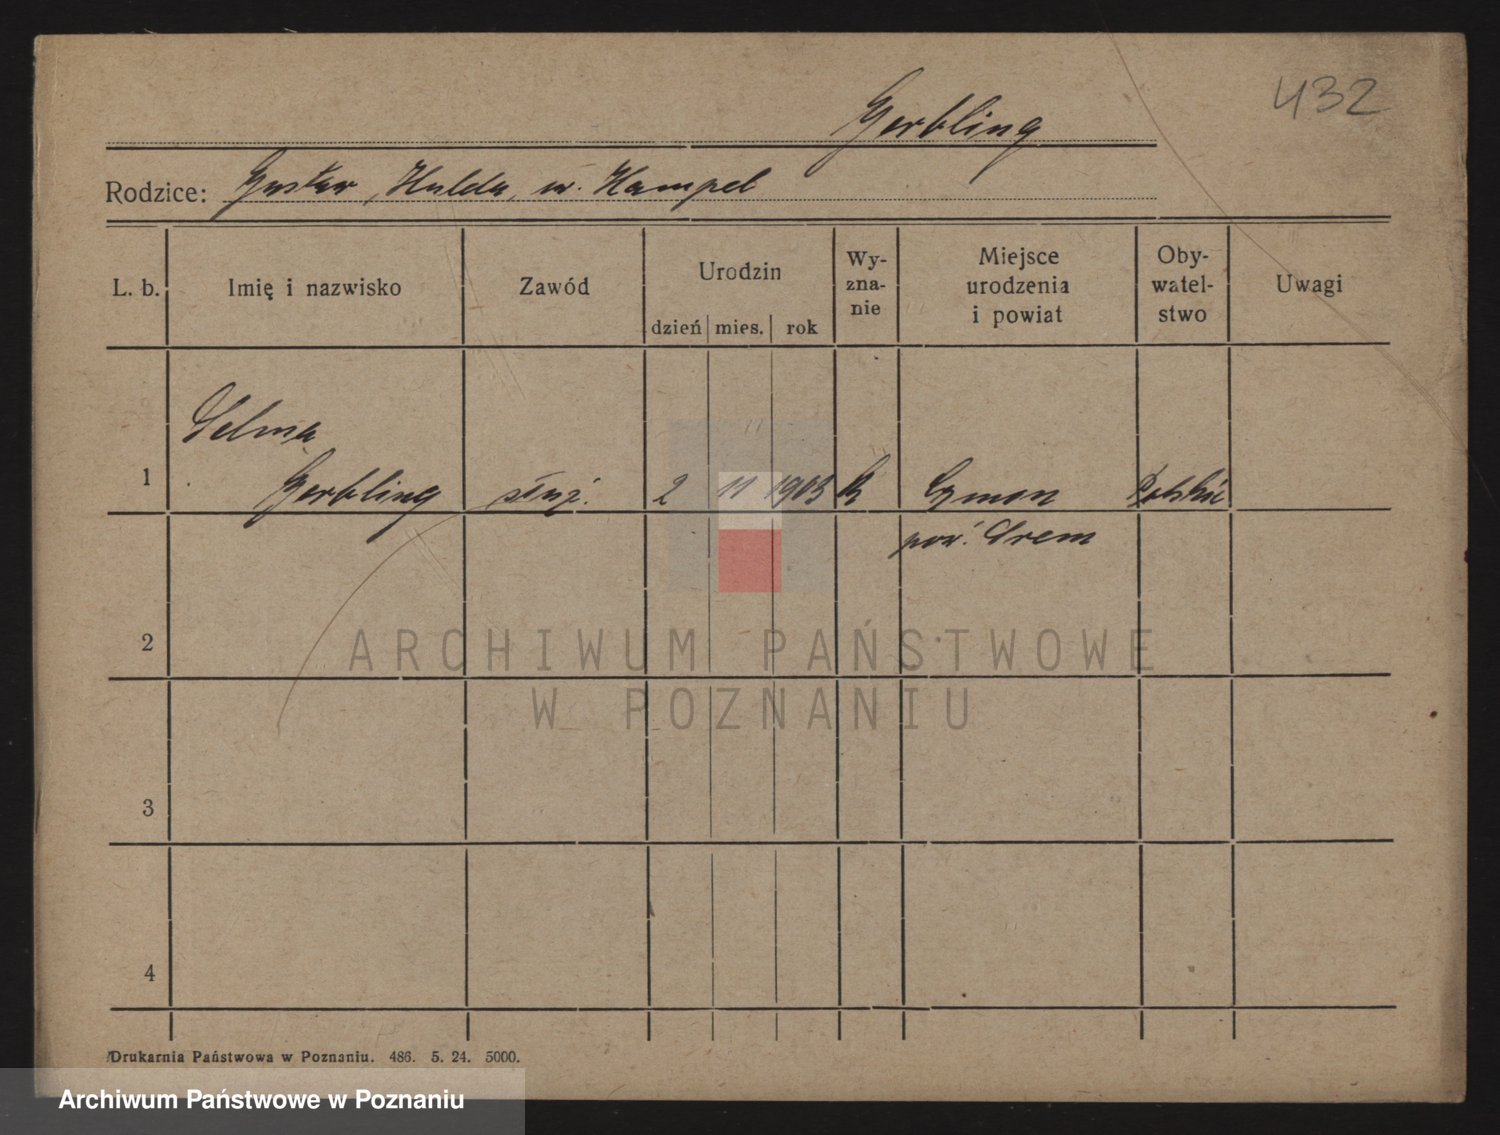 432
Gerbling
Rodzice: Gustav, Hulda, ur. Hampel
L. b. Imię i nazwisko Zawód Urodzin Wy-zna-nie Miejsce urodzenia i powiat Oby-watel-stwo Uwagi
dzień mies. rok
Selma
1 Gerbling służ. 2 11 1903 Cymon Polskie
pow. Śrem
2
3
4
ARCHIWUM PAŃSTWOWE
W POZNANIU
Drukarnia Państwowa w Poznaniu. 486. 5. 24. 5000.
Archiwum Państwowe w Poznaniu